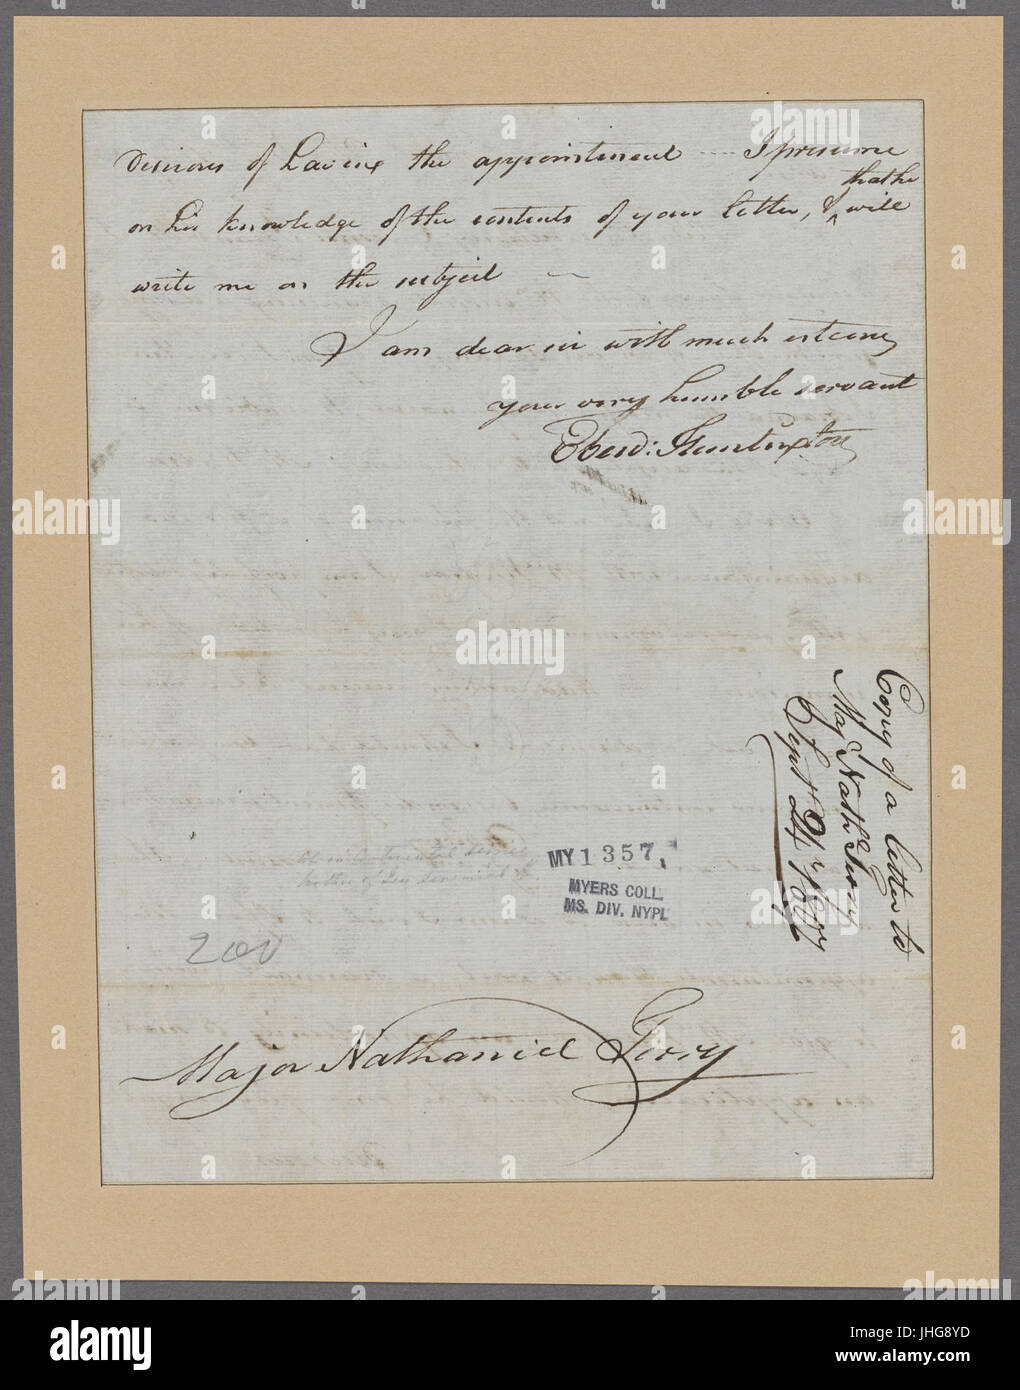 desirous of having the appointment — I presume
that he
on his knowledge of the contents of your letter, & will
write me on the subject —
I am dear sir with much esteem
your very humble servant
Ebenr: Huntington
Copy of a letter to
Maj Nathl Terry
Sept 24 1807
MY 1357.
MYERS COLL.
MS. DIV. NYPL
200
Major Nathaniel Terry
alamy stock photo
JHG8YD
www.alamy.com